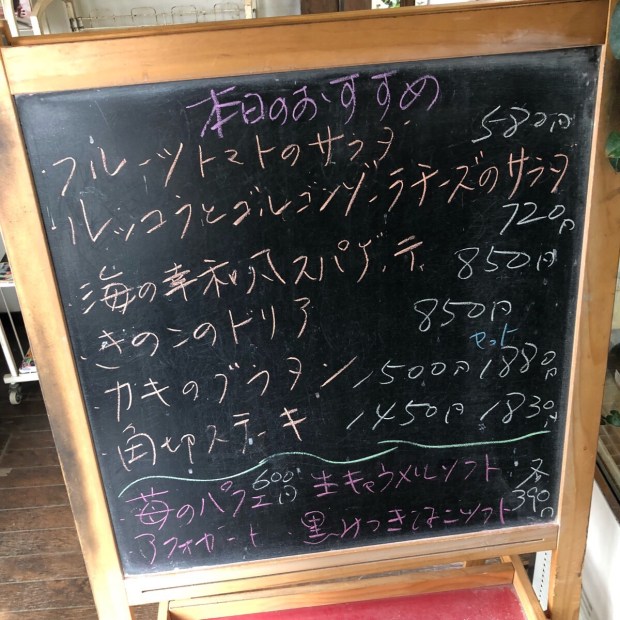 本日のおすすめ
・フルーツトマトのサラダ 580円
・ルッコラとゴルゴンゾーラチーズのサラダ
720円
・海の幸和風スパゲッティ 850円
・きのこのドリア 850円
セット
・カキのグラタン 1500円 1880円
・角切ステーキ 1450円 1830円
・苺のパフェ 600円 ・生キャラメルソフト 各
・アフォガート ・黒みつきなこソフト 390円